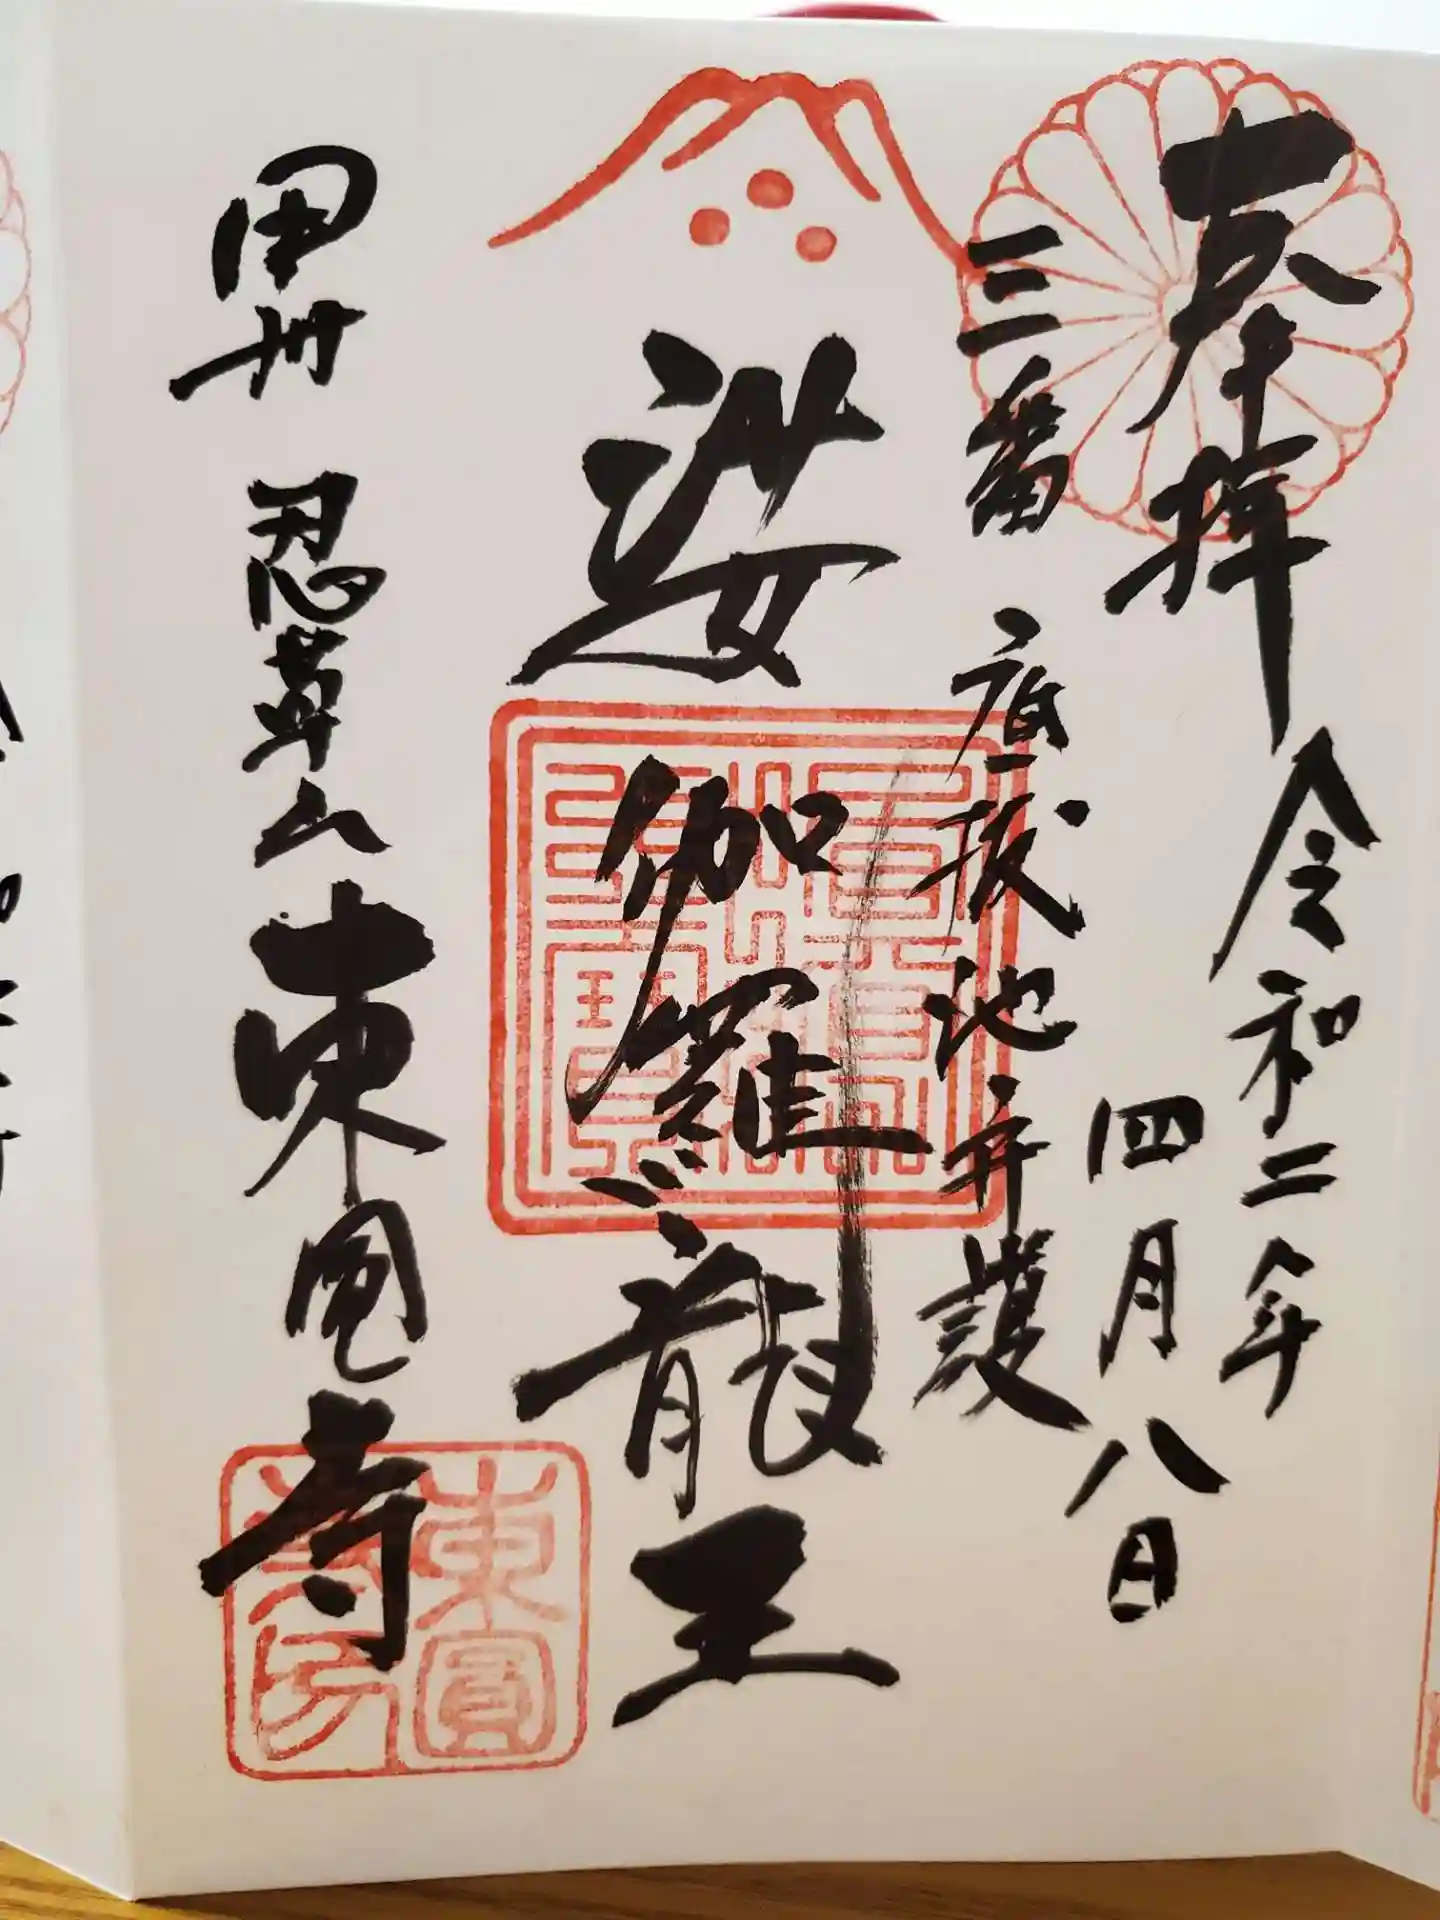 奉拝
令和二年
四月八日
三番
底抜池守護
娑伽羅龍王
甲州
忍草山
東圓寺
東圓